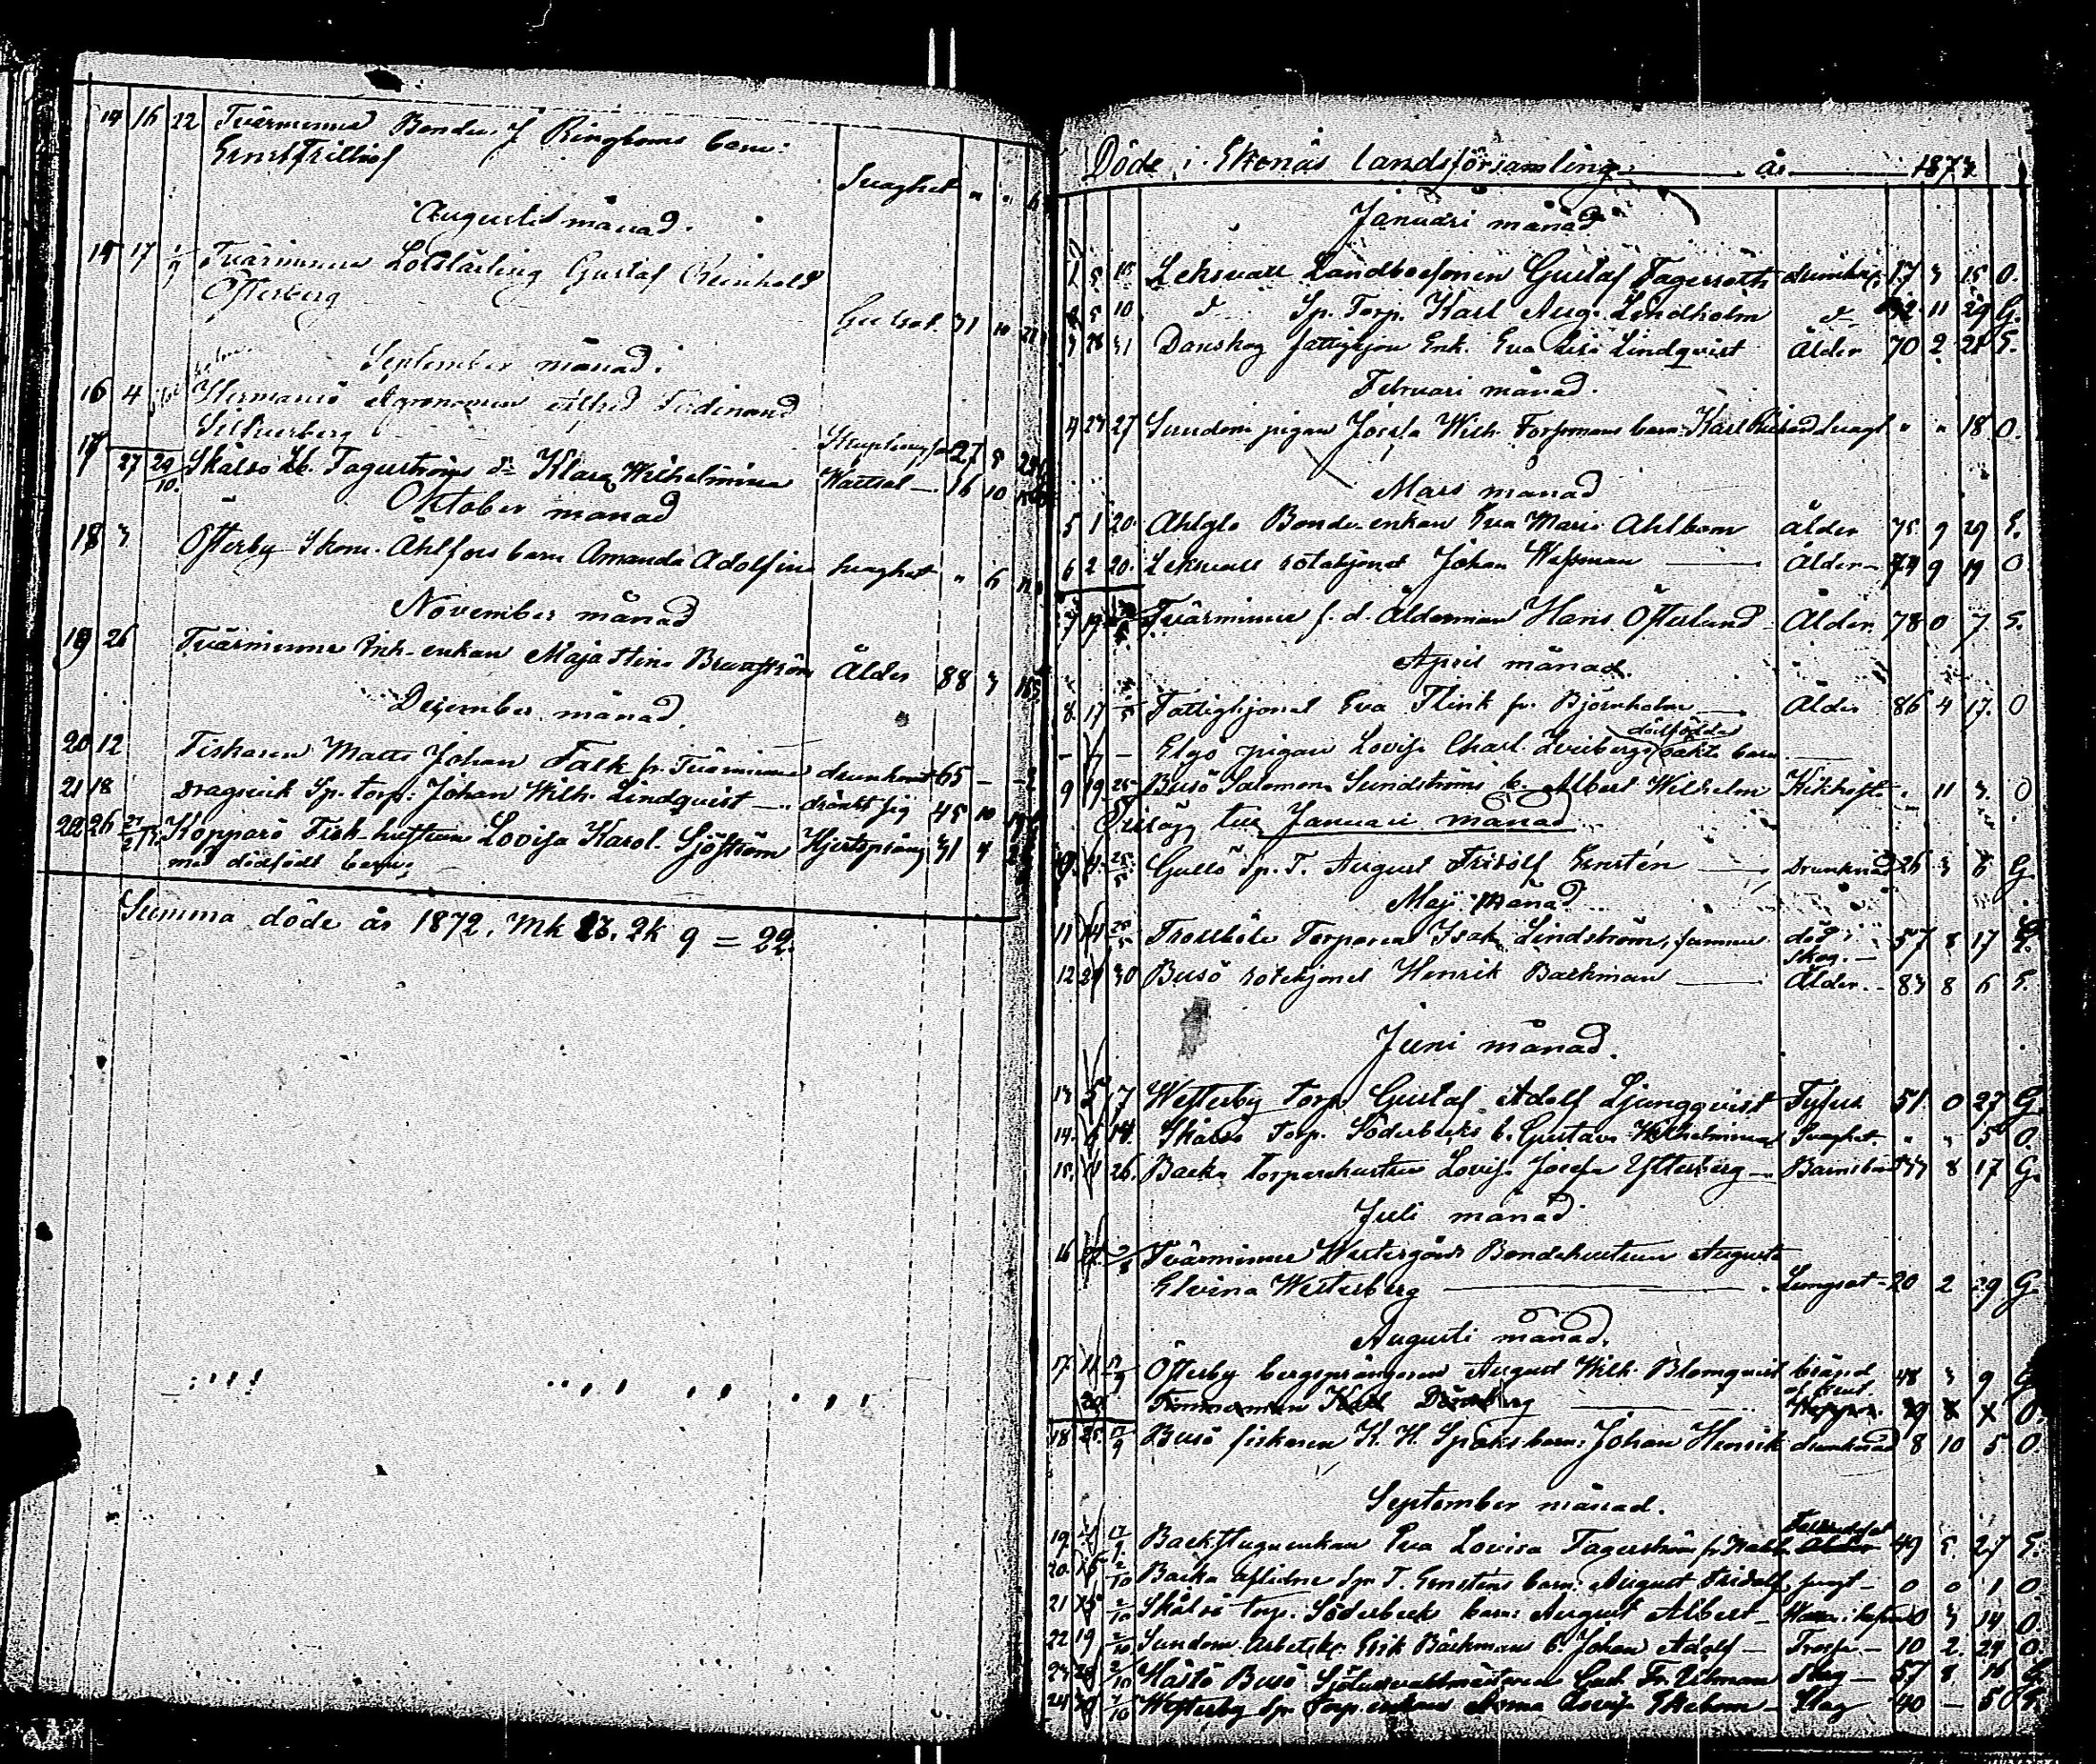 14 16 22 Tvärminne Bonden J Ringboms barn:
Ernst Frithiof
Svaghet " " 6
Augusti månad.
15 17 1/9 Tvärminne Lotslärling Gustaf Reinhold
Österberg
31 10
September månad.
16 4 Hermansö Agronomen Alfred Ferdinand
Silfverberg
27 8
17 27 29/10. Skålsö Lb. Fagerströms dr Klara Wilhelmina Wattsot — 16 10
Oktober månad
18 3 Österby Skom. Åhlfors barn Amanda Adolfina svaghet " 6
November månad
19 26 Tvärminne Inh-enkan Maja Stina Brunström Ålder 88 3
December månad.
20 12 Fiskaren Matts Johan Falk fr. Tvärminne drunknat 65 — 2
21 18 Dragsvik Sp. torp: Johan Wilh. Lindqvist — dränkt sig 45 10
22 26 Kopparö Fisk-hustrun Lovisa Karol. Sjöström Hjertsprång 31 4
med dödfödt barn;
Summa döde år 1872. Mk 13. Qk 9 = 22.
Döde i Ekenäs landsförsamling år 1873
Januari månad
1 5 15 Leksvall Landbosonen Gustaf Fagerroth drunkn. 17 3 15 O.
2 5 10 d Sp. Torp. Karl Aug. Lindholm d 11 29 G.
3 28 31 Danskog fattighjon Enk. Eva Lisa Lindqvist Ålder 70 2 21 E.
Februari månad.
4 23 27 Sundom pigan Josefa Wilh. Forsmans barn: Karl svagt " " 18 O.
Mars månad
5 1 20. Ahlglo Bonde-enkan Eva Maria Ahlbom ålder 75 9 29 E.
6 2 20. Leksvall rotehjonet Johan Wessman — Ålder — 74 9 19 O
7 17 Tvärminne f. d. Ålderman Hans Österlund Ålder. 78 0 7 E.
April månad.
8. 17 Fattighjonet Eva Flink fr. Björnholm — Ålder 86 4 17. O
dödfödda
— — Elgö pigan Lovisa Charl. Lvibergs oäkta barn —
9 19 25 Busö Salomon Sundströms b. Albert Wilhelm Kikhost " 11 3. O
Tillägg till Januari månad
Gullö Sp. T. August Fridolf Ernstén — Drunknad 26 3 6 G
Maji månad
11 14 25/5 Trollböle Torparen Isak Lindström, funnen död i 57 8 17 E.
skog. —
12 21 30 Busö rotehjonet Henrik Backman — Ålder. — 83 8 6 E.
Juni månad.
13 5 17 Westerby Torp Gustaf Adolf Ljungqvist Tyfus 51 0 27 G
14. 6 14. Skålsö Torp. Söderbäcks b. Gustava Wilhelmina Svaghet. " " 5 O.
15. 11 26. Backa torparehustru Lovisa Josefa Ytterberg — Barnsbörd 33 8 17 G.
Juli månad
16 27 2/8 Tvärminne Westergårds Bondehustrun Augusta
Elvina Westerberg — Lungsot — 20 2 29 G.
Augusti månad.
17. 11 Österby bergsprängaren August Wilh. Blomqvist bränd 48 3 9 G
af krut.
20 Timmerman Karl O.
18 25. 17/9 Busö fiskaren K. H. Spoks barn: Johan Henrik drunknad 8 10 5 O
September månad.
19. 17/9 Backstuguenkan Eva Lovisa Fagerström fr. 49 5. 27 E.
20. 15 2/10 Backa aflidne Sp. T. Ernsténs barn: August Fridolf, svagt — 0 0 1 O
21 15 2/10 Skålsö torp. Söderbäck barn: August Albert — 0 3 14 O.
22 19 2/10 Sundom Arbetsk. Erik Bäckmans b. Johan Adolf — 10 2. 24 O.
23 20 2/10 Hästö Busö Gust. Fr. Slag — 57 8. 16 G
24 2/10 Westerby Sp. torp. enkan Anna Lovisa Ekebom — Slag 40 — 5 E.